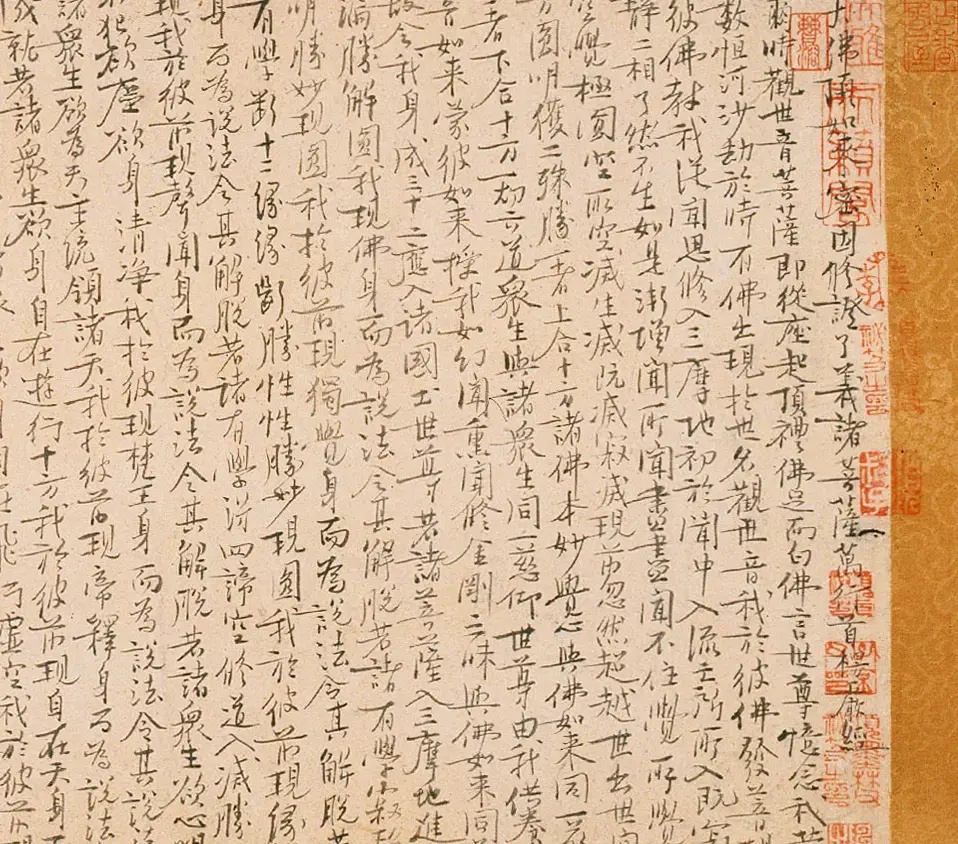 大佛頂如來密因修證了義諸菩薩萬行首楞嚴經
爾時觀世音菩薩即從座起頂禮佛足而白佛言世尊憶念我昔
數恒河沙劫於時有佛出現於世名觀世音我於彼佛發菩提
彼佛教我從聞思修入三摩地初於聞中入流亡所所入既寂
靜二相了然不生如是漸增聞所聞盡盡聞不住覺所覺
空覺極圓空所空滅生滅既滅寂滅現前忽然超越世出世間
方圓明獲二殊勝一者上合十方諸佛本妙覺心與佛如來同一
者下合十方一切六道衆生與諸衆生同一慈仰世尊由我供養
音如來蒙彼如來授我如幻聞熏聞修金剛三昧與佛如來同
故令我身成三十二應入諸國土世尊若諸菩薩入三摩地進
漏勝解圓我現佛身而為說法令其解脫若諸有學寂
明勝妙現圓我於彼前現獨覺身而為說法令其解脫若
有學斷十二緣緣斷勝性性勝妙現圓我於彼前現緣
身而為說法令其解脫若諸有學得四諦空修道入滅勝
現我於彼前現聲聞身而為說法令其解脫若諸衆生欲心明
不犯欲塵欲身清淨我於彼現梵王身而為說法令其說
諸衆生欲為天主統領諸天我於彼前現帝釋身而為說法
成就若諸衆生欲身自在遊行十方我於彼前現自在天身
飛行虛空我於彼前現